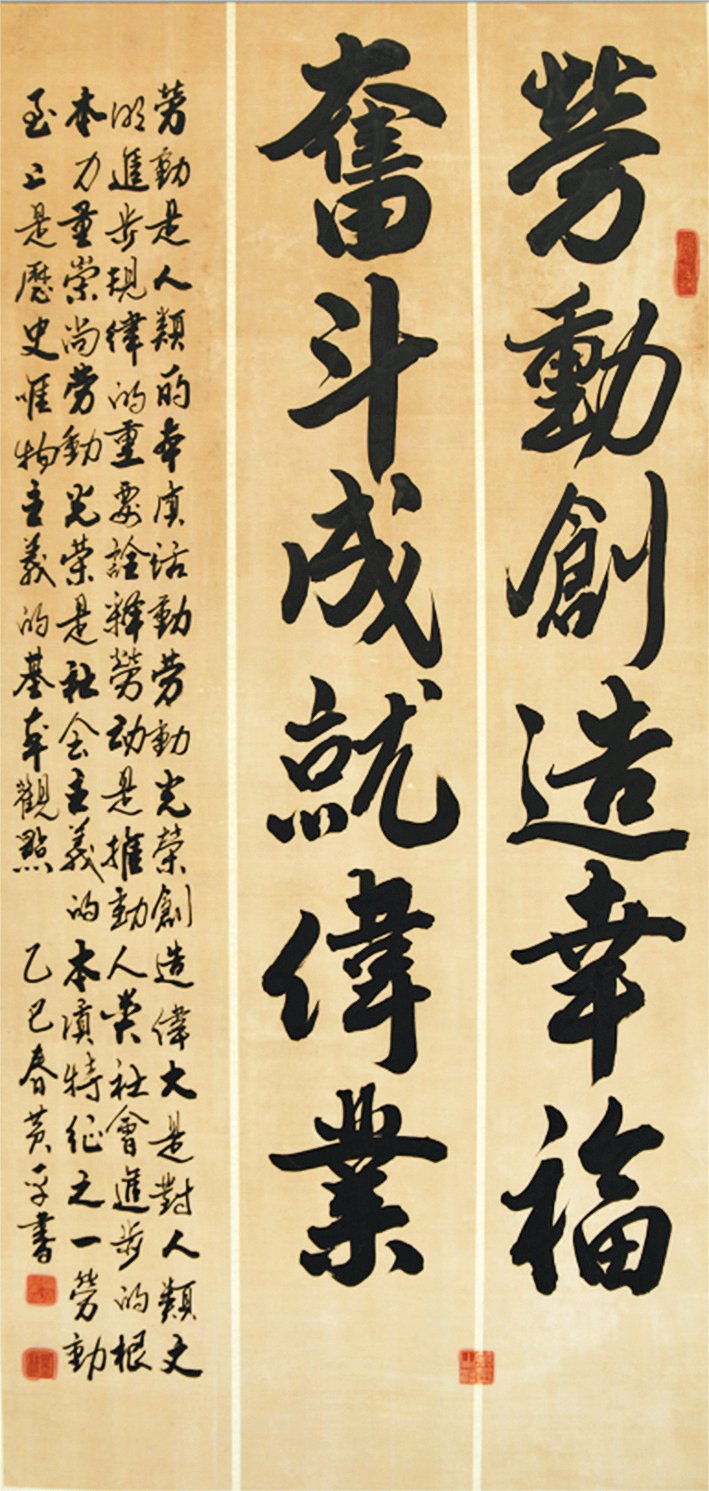 勞動創造幸福
奮斗成就偉業
勞動是人類的本質活動勞動光榮創造偉大是對人類文
明進步規律的重要詮釋勞动是推動人类社會進步的根
本力量崇尚劳動光荣是社会主義的本質特征之一勞動
至上是歷史唯物主義的基本觀點 乙巳春黄平書